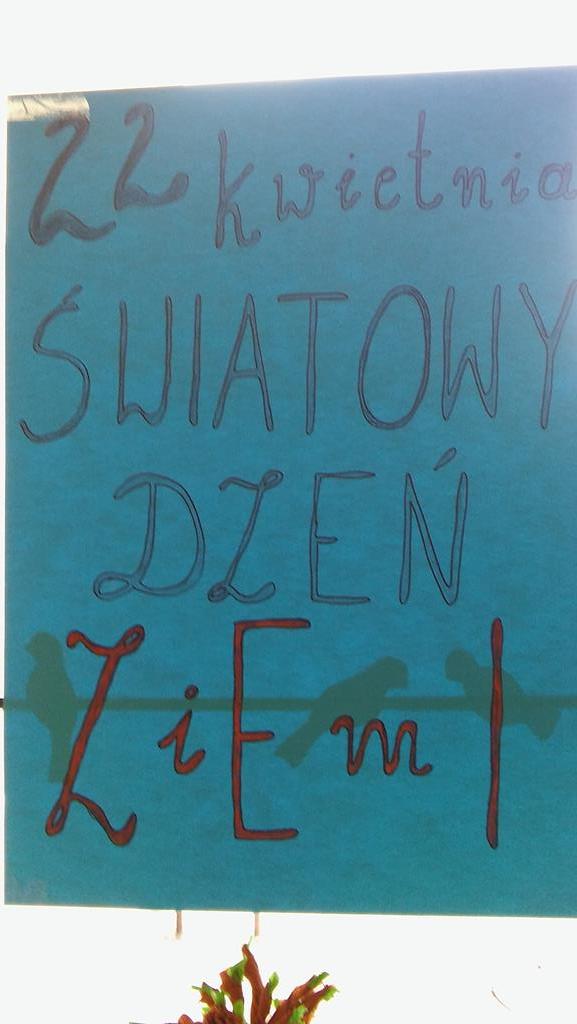 22 kwietnia
ŚWIATOWY
DZEŃ
ZiEmI